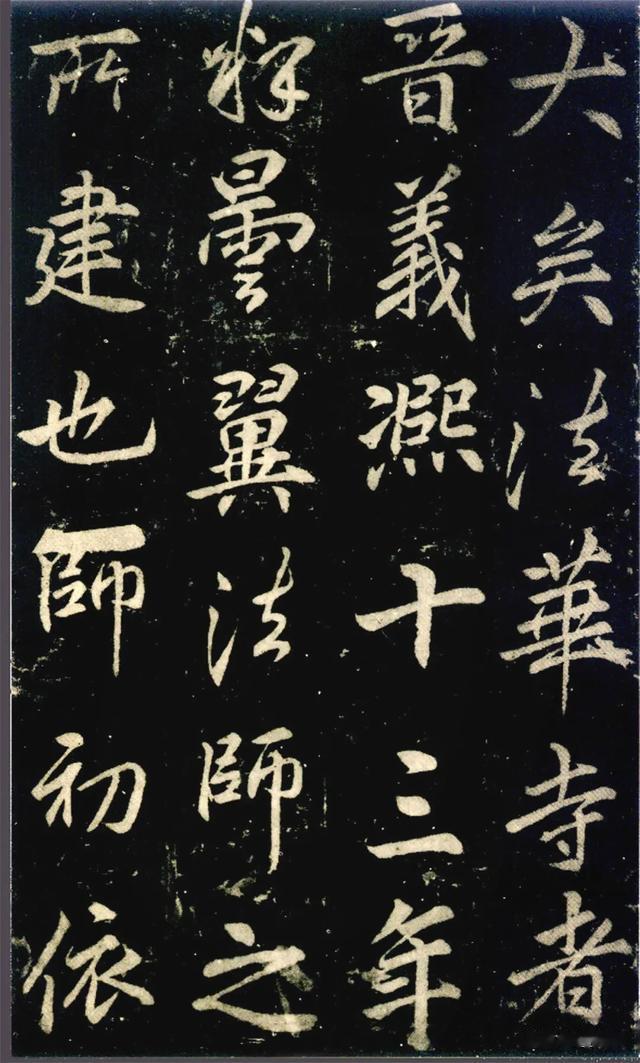 大矣法華寺者
晉義熙十三年
釋曇翼法師之
所建也師初依